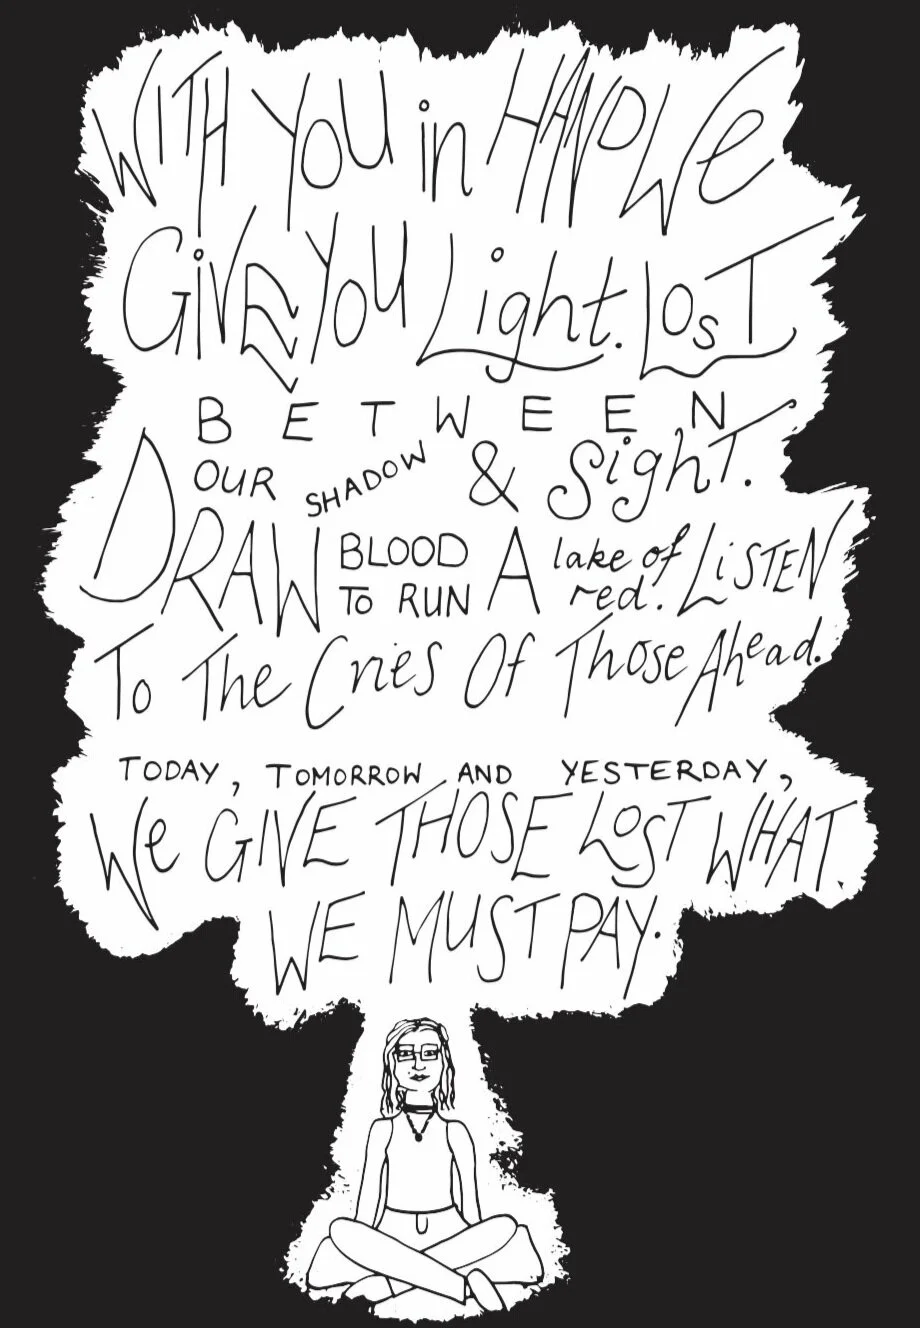 WITH YOU in HAND We
GiVE YOU Light. LosT
BETWEEN
OUR SHADOW & SighT.
DRAW BLOOD TO RUN A lake of red. LiSTEN
To The Cries Of Those Ahead.
TODAY, TOMORROW AND YESTERDAY,
We GIVE THOSE LOST WHAT
WE MUST PAY.